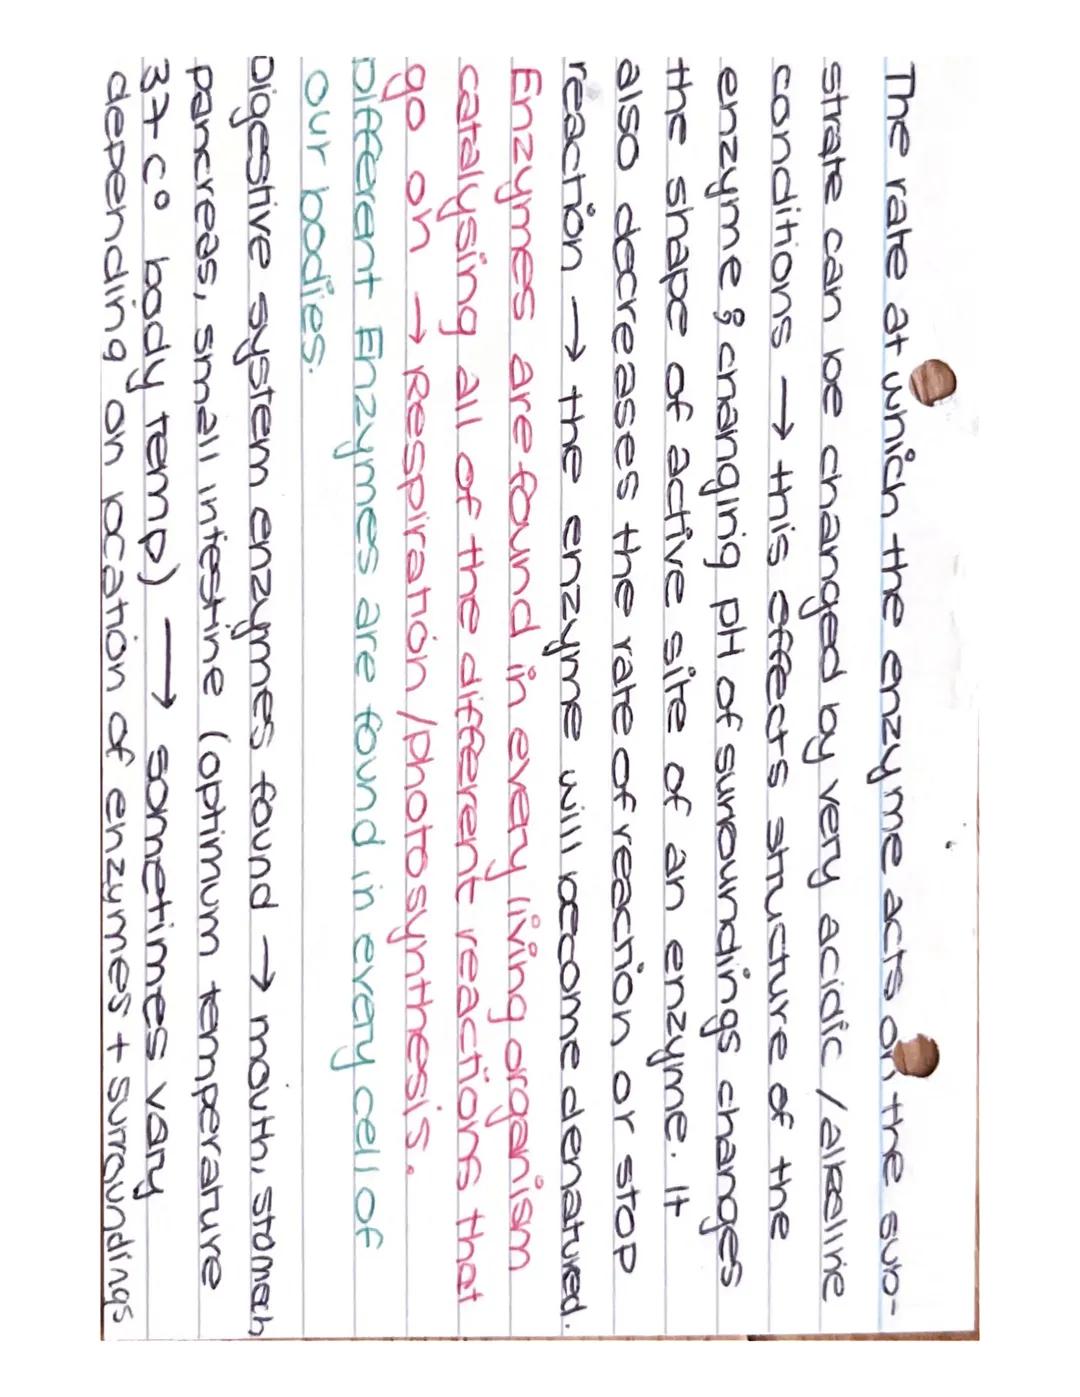 The rate at which the enzyme acts on the sub-
strate can be changed by very acidic /alkeline
conditions → this effects structure of the
enzyme & changing pH of surroundings changes
the shape of active site of an enzyme. It
also decreases the rate of reaction or stop
reaction → the enzyme will become denatured.
Enzymes are found in every living organism
catalysing all of the different reactions that
go on → Respiration /photosynthesis.
Different Enzymes are found in every cell of
our bodies.
Digestive system enzymes found → mouth, stomah
pancreas, small intestine (optimum temperature
37 c° body temp) → sometimes vary
depending on location of enzymes + surroundings